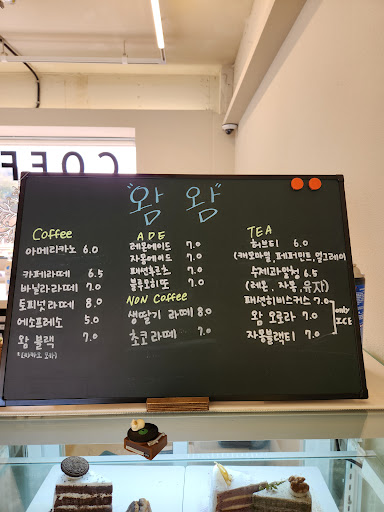 COFF
"왐 왐"
Coffee
아메리카노 6.0
카페라떼 6.5
바닐라라떼 7.0
토피넛라떼 8.0
에소프레소 5.0
왐 블랙 7.0
ADE
레몬에이드 7.0
자몽에이드 7.0
패션후르츠 7.0
블루모히또 7.0
NON Coffee
생딸기 라떼 8.0
초코 라떼 7.0
TEA
허브티 6.0
(캐모마일, 페퍼민트, 얼그레이
수제과일청 6.5
(레몬, 자몽, 유자)
패션히비스커스 7.0
왐 오로라 7.0
자몽블랙티 7.0
only
ICE